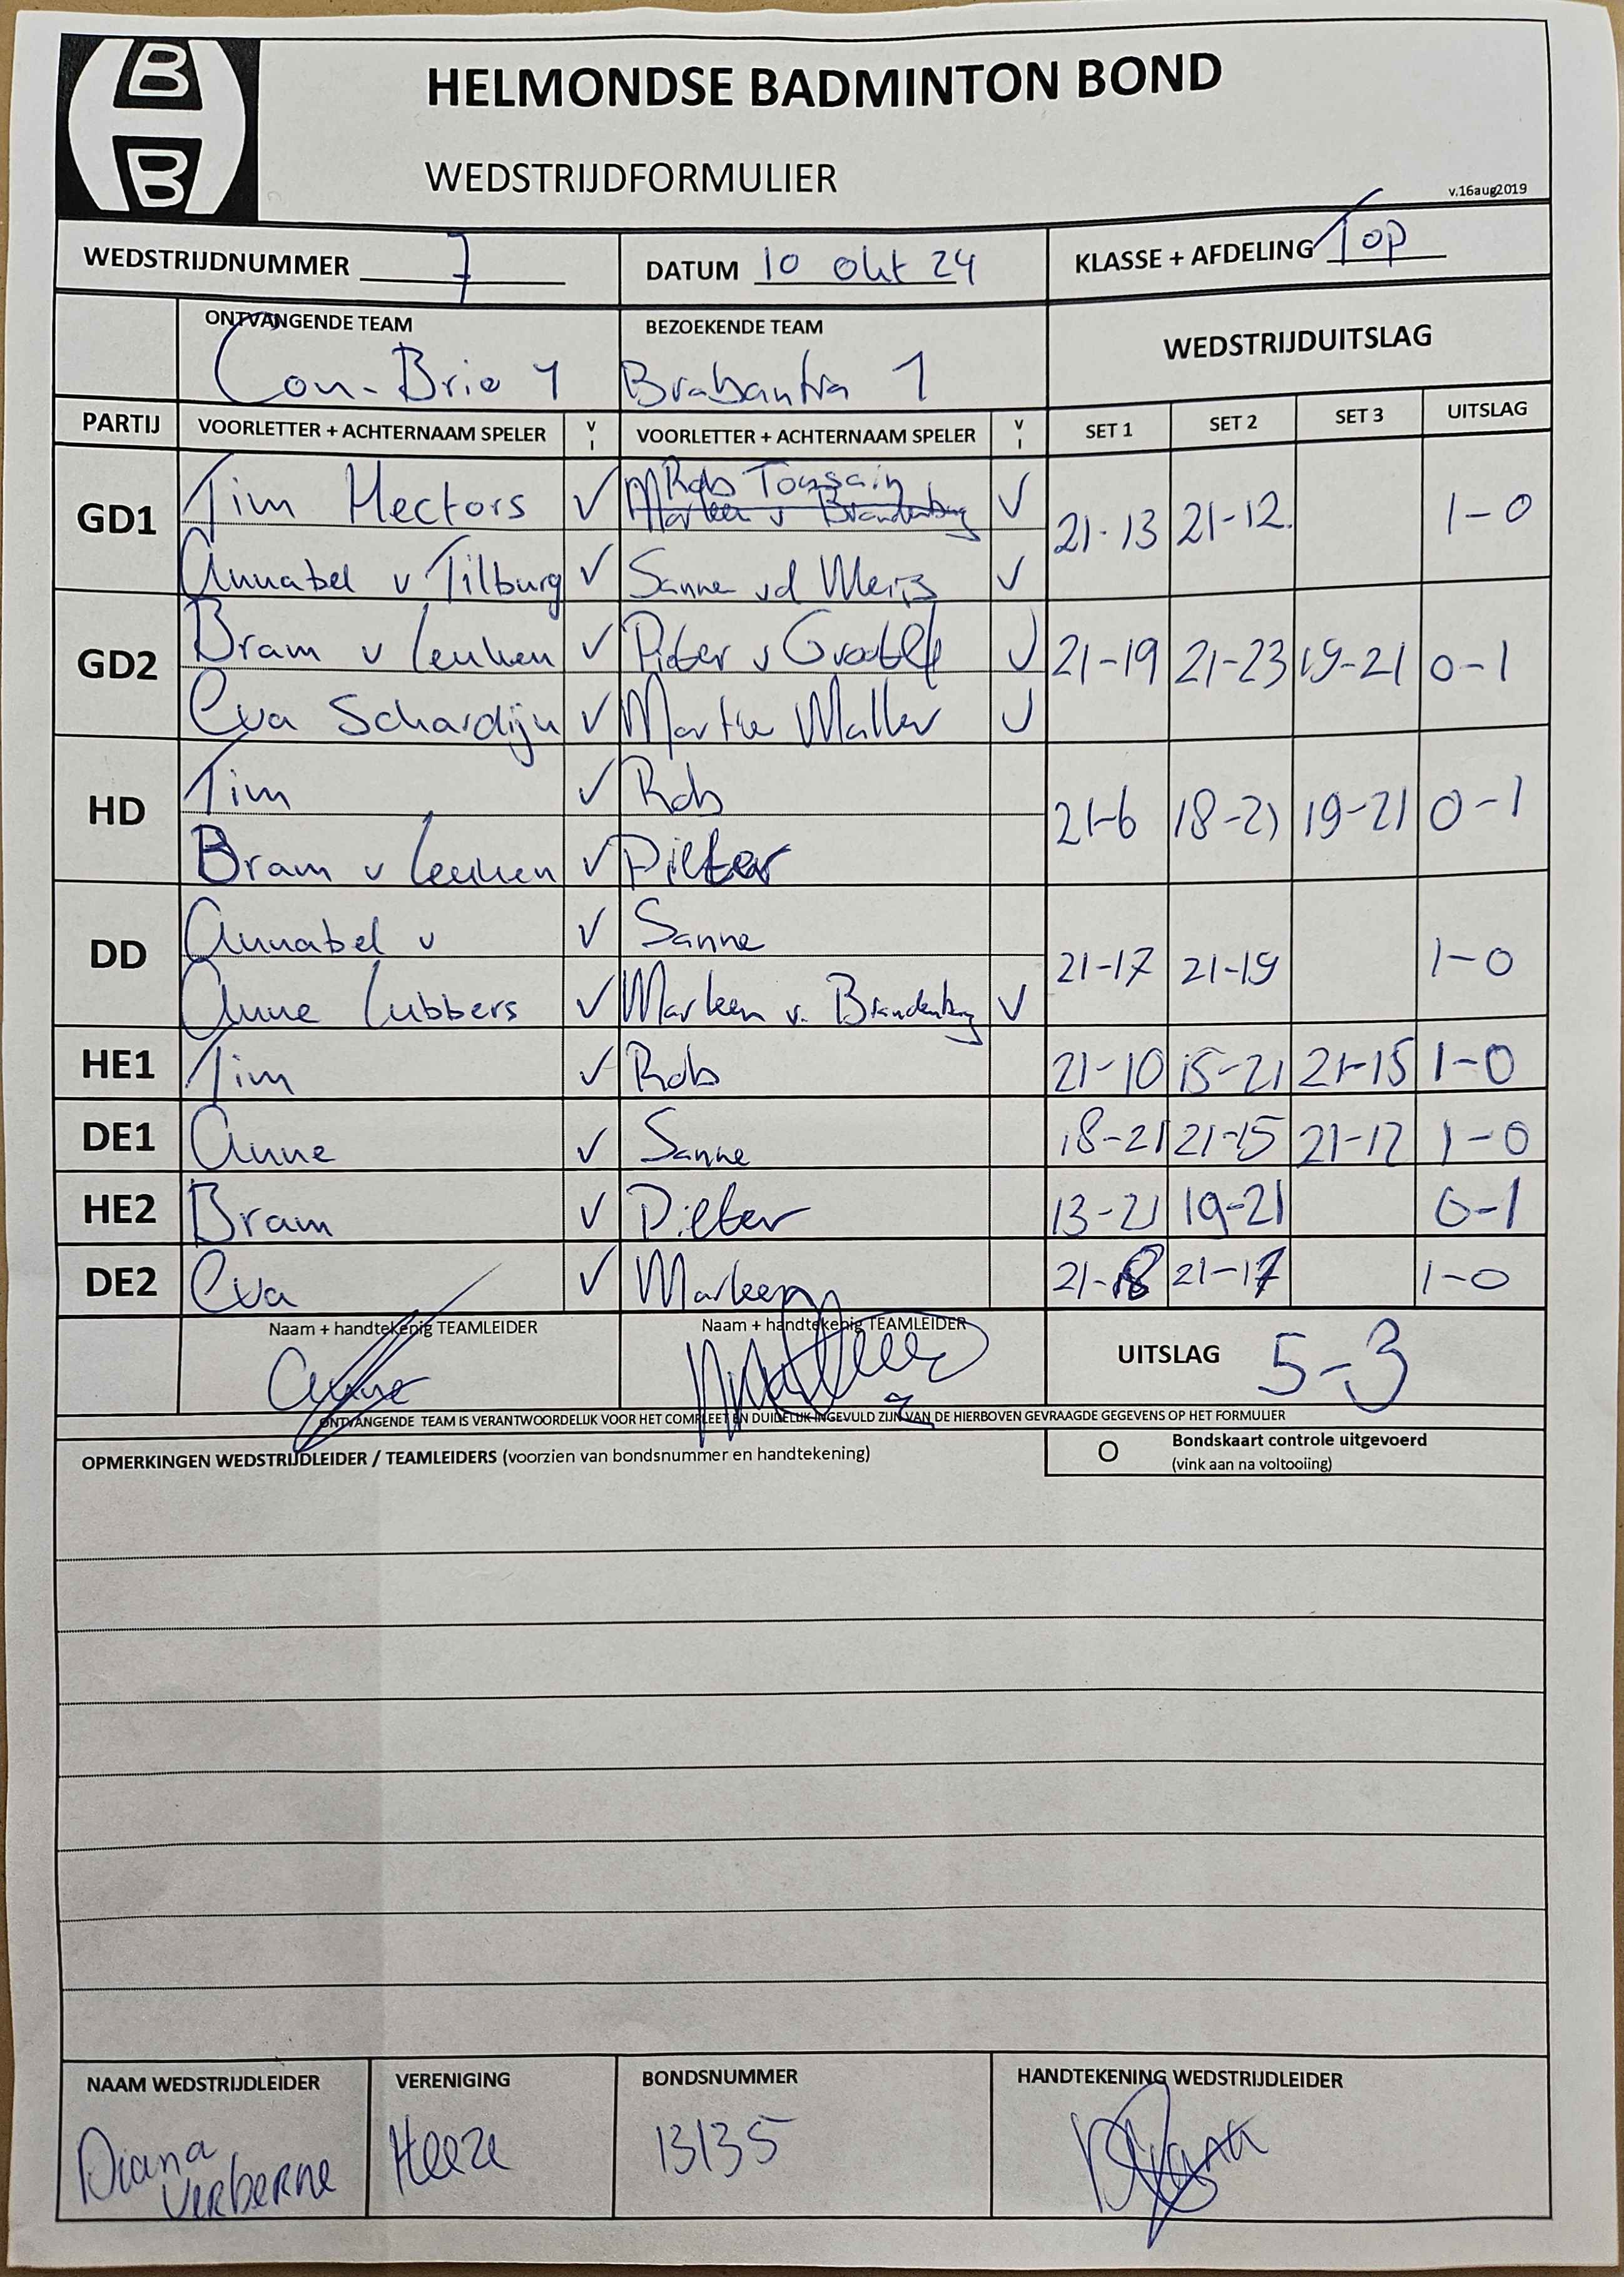 B
B
HELMONDSE BADMINTON BOND
WEDSTRIJDFORMULIER
v.16aug2019
WEDSTRIJDNUMMER 7 DATUM 10 okt 24 KLASSE + AFDELING Top
ONTVANGENDE TEAM BEZOEKENDE TEAM WEDSTRIJDUITSLAG
Con-Brio 1 Brabantia 1
PARTIJ VOORLETTER + ACHTERNAAM SPELER V I VOORLETTER + ACHTERNAAM SPELER V I SET 1 SET 2 SET 3 UITSLAG
GD1 Tim Hectors V Rob Toussain V 21-13 21-12 1-0
Marleen v Brandenburg
Annabel v Tilburg V Sanne vd V
GD2 Bram v Leuken V Pieter v V 21-19 21-23 19-21 0-1
Eva Schardijn V V
HD Tim V Rob 21-6 18-21 19-21 0-1
Bram v Leuken V Pieter
DD Annabel v V Sanne 21-17 21-19 1-0
Anne Lubbers V Marleen v. Brandenburg V
HE1 Tim V Rob 21-10 15-21 21-15 1-0
DE1 Anne V Sanne 18-21 21-15 21-12 1-0
HE2 Bram V Pieter 13-21 19-21 0-1
DE2 Eva V Marleen 21-18 21-17 1-0
Naam + handtekenig TEAMLEIDER Naam + handtekenig TEAMLEIDER UITSLAG 5-3
Anne
ONTVANGENDE TEAM IS VERANTWOORDELIJK VOOR HET COMPLEET EN DUIDELIJK INGEVULD ZIJN VAN DE HIERBOVEN GEVRAAGDE GEGEVENS OP HET FORMULIER
OPMERKINGEN WEDSTRIJDLEIDER / TEAMLEIDERS (voorzien van bondsnummer en handtekening) O Bondskaart controle uitgevoerd
(vink aan na voltooiing)
NAAM WEDSTRIJDLEIDER VERENIGING BONDSNUMMER HANDTEKENING WEDSTRIJDLEIDER
Diana Verberne Heeze 13135